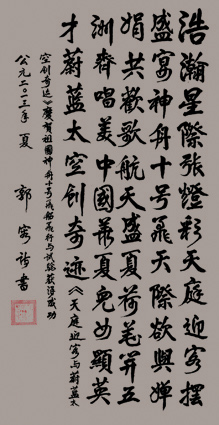 浩瀚星際張燈彩天庭迎客擺
盛宴神舟十号飛天際欲與嬋
娟共歡歌航天盛夏荷花開五
洲齊唱美中國華夏兒女顯英
才蔚藍太空創奇迹《天庭迎客与蔚蓝太
空創奇迹》慶賀祖國神舟十号飛船飛行与试验获得成功
公元二〇一三年夏 郭
書